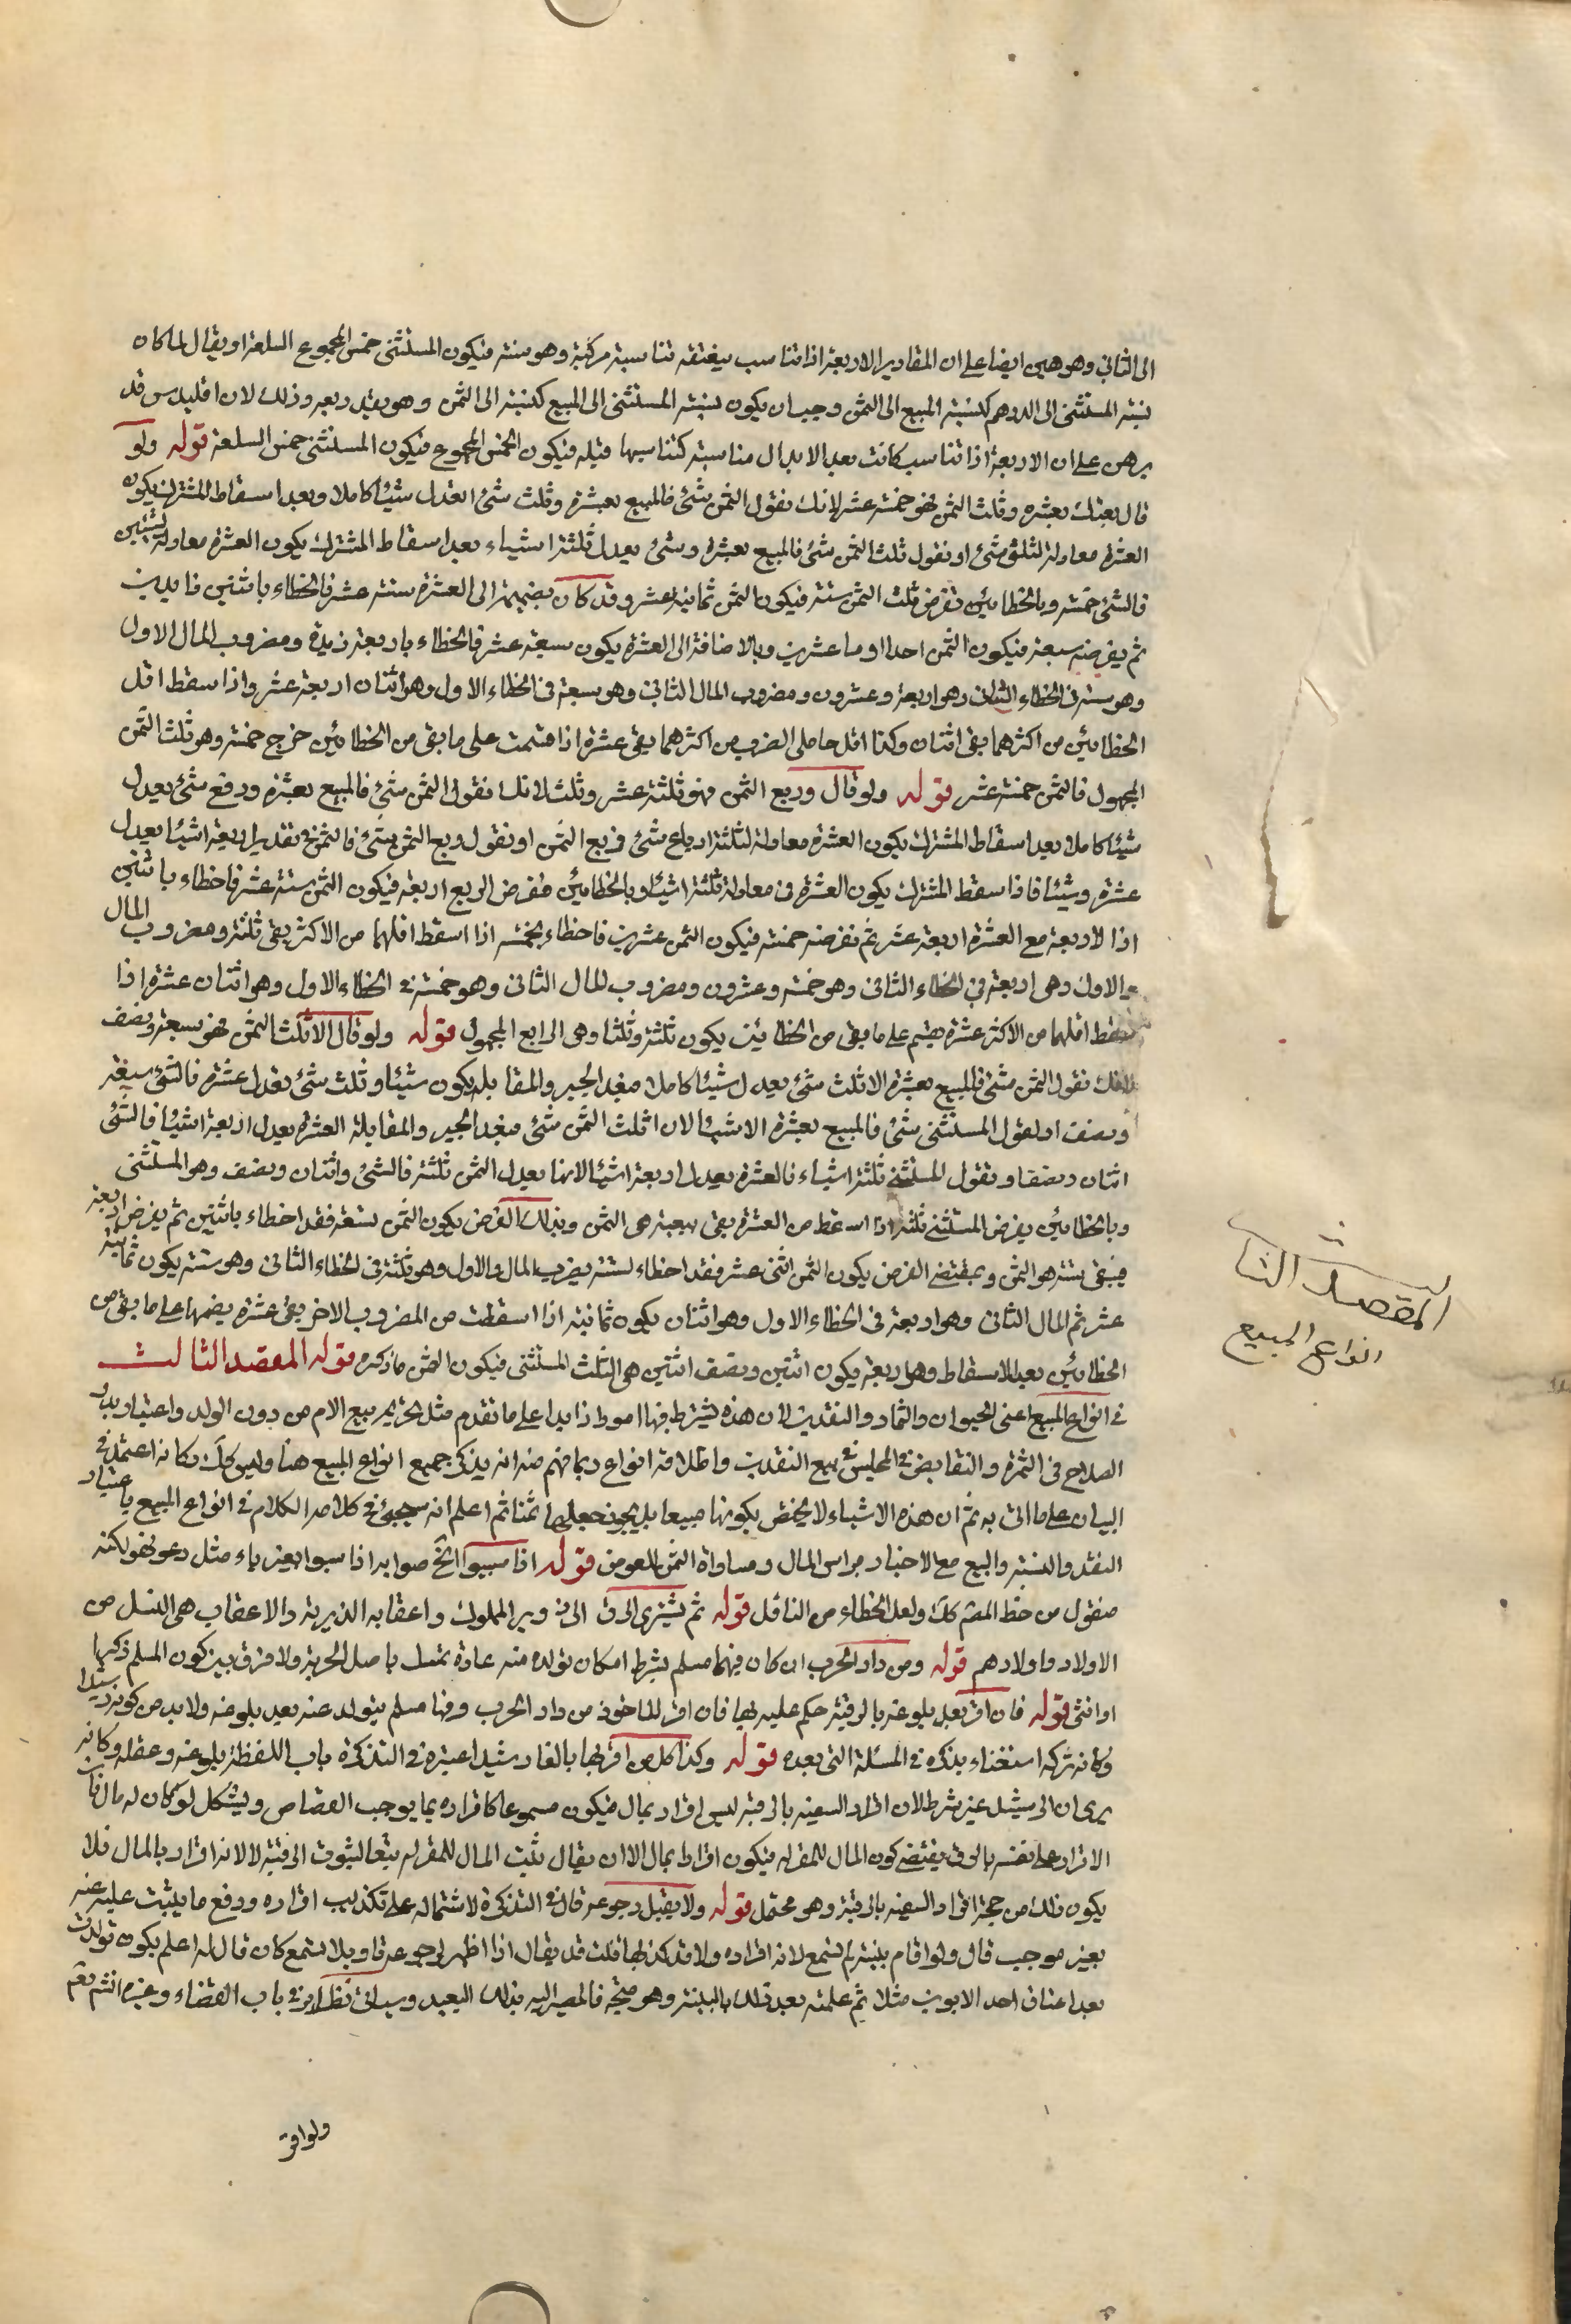 الى الثاني وهو هين ايضا على ان المقادير الاربعة اذا تناسب متفقة تناسبت مركبة وهو منه فيكون المستثنى خمس المجموع السلعة او يقال لما كان
نسبة المستثنى الى الدرهم كنسبة المبيع الى الثمن وجب ان يكون نسبة المستثنى الى المبيع كنسبته الى الثمن وهو بقدر ربعه وذلك لان اقليدس قد
برهن على ان الاربعة اذا تناسب كانت بعد الابدال مناسبة كتناسبها قبله فيكون الخمس المجموع فيكون المستثنى خمس السلعة قوله ولو
قال بعتك بعشرة وثلث الثمن فهو خمسة عشر لانك تقول الثمن شئ فالمبيع بعشرة وثلث شئ تعدل شيئا كاملا وبعد اسقاط المشترك يكون
العشرة معادلة لثلثي شئ او نقول ثلث الثمن شئ فالمبيع بعشرة وشئ يعدل ثلثة اشياء بعد اسقاط المشترك يكون العشرة معادلة لشيئين
فالشئ خمسة وبالخطائين نفرض ثلث الثمن ستة فيكون الثمن ثمانية عشر وقد كان بضميمة الى العشرة ستة عشر فالخطاء باثنين زايدين
ثم يفرضه سبعة فيكون الثمن احدا وعشرين وبالاضافة الى العشرة يكون سبعة عشر فالخطاء باربعة زيدة ومضروب المال الاول
وهو ستة في الخطاء الثاني وهو اربعة وعشرون ومضروب المال الثاني وهو سبعة في الخطاء الاول وهو اثنان اربعة عشر واذا سقط اقل
الخطائين من اكثرهما بقى اثنان وكذا اقل حاصلي الضرب من اكثرهما يبقى عشرة اذا قسمت على ما بقى من الخطائين خرج خمسة وهو ثلث الثمن
المجهول فالثمن خمسة عشر قوله ولو قال وربع الثمن فهو ثلثة عشر وثلث لانك تقول الثمن شئ فالمبيع بعشرة وربع شئ يعدل
شيئا كاملا بعد اسقاط المشترك يكون العشرة معادلة لثلثة ارباع شئ فربع الثمن او نقول ربع الثمن شئ فالثمن في تقدير اربعة اشياء يعدل
عشرة وشيئا فاذا سقط المشترك يكون العشرة في معادلة ثلثة اشياء وبالخطائين نفرض الربع اربعة فيكون الثمن ستة عشر فاخطاء باثنين
اذا لاربعة مع العشرة اربعة عشر ثم نفرضه خمسة فيكون الثمن عشرين فاخطاء بخمسة اذا اسقط اقلهما من الاكثر بقى ثلثة ومضروب المال
الاول وهي اربعة في الخطاء الثاني وهو خمسة وعشرون ومضروب المال الثاني وهو خمسة في الخطاء الاول وهو اثنان عشرة اذا
سقط اقلهما من الاكثر عشرة يقسم على ما بقى من الخطائين يكون ثلثة وثلثا وهي الرابع المجهول قوله ولو قال الا ثلث الثمن فهو سبعة ونصف
لانك تقول الثمن شئ فالمبيع بعشرة الا ثلث شئ يعدل شيئا كاملا فبعد الجبر والمقابلة يكون شيئا وثلث شئ تعدل عشرة فالشئ سبعة
ونصف او نقول المستثنى شئ فالمبيع بعشرة الا شيئا لان ثلث الثمن شئ فبعد الجبر والمقابلة العشرة يعدل اربعة اشياء فالشئ
اثنان ونصفا ونقول المستثنى ثلثة اشياء فالعشرة يعدل اربعة اشياء لانها يعدل الثمن ثلثة فالشئ واثنان ونصف وهو المستثنى
وبالخطائين يفرض المستثنى ثلثة اذا اسقط من العشرة بقى سبعة هي الثمن وبذلك الفرض يكون الثمن تسعة فقد اخطاء باثنين ثم يفرض اربعة
فيبقى ستة هو الثمن وبمقتضى الفرض يكون الثمن اثنى عشر فقد اخطاء لستة يضرب المال الاول وهو ثلثة في الخطاء الثاني وهو ستة يكون ثمانية
عشر ثم المال الثاني وهو اربعة في الخطاء الاول وهو اثنان يكون ثمانية اذا اسقطت من المضروب الاخر بقى عشرة يضمها على ما بقى من
الخطائين بعد الاسقاط وهو اربعة يكون اثنين ونصف اثنين هي الثلث المستثنى فيكون الثمن ما ذكره قوله المقصد الثالث
في انواع المبيع اعنى الحيوان والثمار والنقدين لان هذه يشترط فيها امور زايدا على ما تقدم مثل تحريم بيع الام من دون الولد واعتبار بدو
الصلاح في الثمرة والتقابض في المجلس في بيع النقدين واطلاقه انواع ربما فهم منه انه يذكر جميع انواع المبيع هنا وليس كك وكانه اعتمد في
البيان على ما اتى به ثم ان هذه الاشياء لا يختص بكونها مبيعا بل يجوز جعلها ثمنا ثم اعلم انه سيجئ في كلام المص الكلام في انواع المبيع باعتبار
النقد والنسية والبيع مع الاخبار براس المال ومساواة الثمن للعوض قوله اذا سبيوا الخ صوابه اذا سبوا بغير ياء مثل دعوا فهو لكنه
منقول من خط المص كك ولعل الخطاء من الناقل قوله ثم يسرى الرق الى ذرية المملوك واعقابه الذرية والاعقاب هي النسل من
الاولاد واولادهم قوله ومن دار الحرب ان كان فيها مسلم بشرط امكان تولده منه عادة تمسك باصل الحرية ولا فرق بين كون المسلم ذكرا
او انثى قوله فان اقر بعد بلوغه بالرقية حكم عليه بها فان اقر الماخوذ من دار الحرب وفيها مسلم يتولد عنه بعد بلوغه ولا بد من كونه رشيدا
وكانه تركه استغناء بذكره في المسئلة التي بعده قوله وكذا كل من اقر بها بالغا رشيدا اعتبره في التذكرة باب اللقطة بلوغه وعقله وكانه
يرى ان الرشد غير شرط لان اقرار السفيه بالرقية ليس اقرار بمال فيكون مسموعا كاقراره بما يوجب القصاص ويشكل لو كان له مال فان
الاقرار على نفسه بالرق يقتضى كون المال للمقر له فيكون اقرارا بمال الا ان يقال يثبت المال للمقر له تبعا لثبوت الرقية لا لانه اقرار بالمال فلا
يكون ذلك من حجة اقرار السفيه بالرقية وهو محتمل قوله ولا يقبل رجوعه قال في التذكرة لاشتماله على تكذيب اقراره ورفع ما يثبت عليه عنه
بغير موجب قال ولو اقام بينة لم تسمع لانه اقراره ولا قد كذبها قلت قد يقال اذا اظهر لرجوعه تاويلا تسمع كان قال لم اعلم بكونى تولدت
بعد اعتاق احد الابوين مثلا ثم علمته بعد ذلك بالبينة وهو متجه فالمصير اليه بذلك البعيد وسياتى نظايره في باب القضاء وغيره انشم نعم
ولو اقر
المقصد الثالث
انواع المبيع